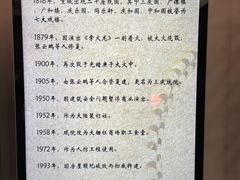 1816年，京城出现三十座戏园，其中三庆园、广德楼、
广和楼、庆乐园、同乐轩、庆和园、中和园被誉为
七大戏楼。
1879年，因《李大儿》一剧着火，被大火烧毁，
张云鹏等人修复。
1900年，再次毁于光绪庚子大火中。
1905年，由张云鹏等人合资复建，更名为三庆戏院。
1950年，因建筑安全问题暂停商业演出。
1952年，作为大栅栏
1958年，戏院改为大栅栏商场职工食堂。
1972年，作为人防工程使用。
1993年，因房屋颓圮破败而拆除重建。